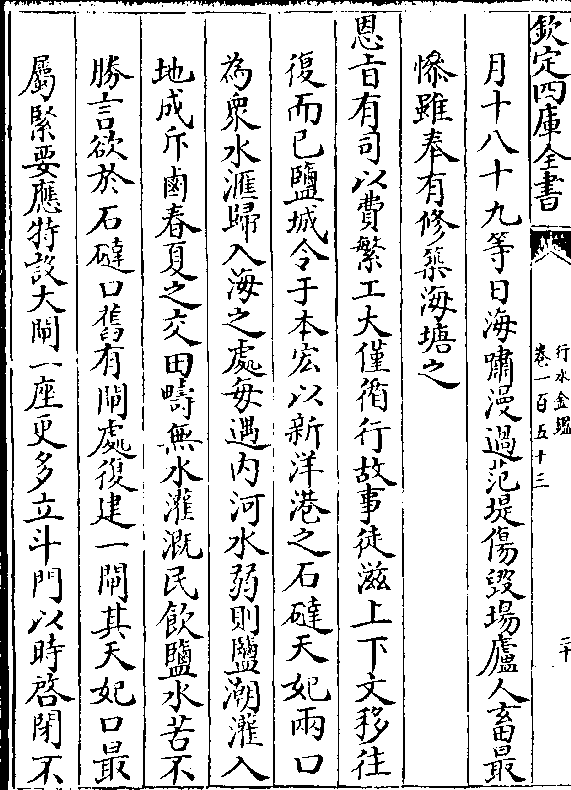 欽定四庫全書
行水金鑑
卷一百五十三
二十
月十八十九等日海嘯漫過范堤傷毀場廬人畜最
慘雖奉有修築海塘之
恩旨有司以費繁工大僅循行故事徒滋上下文移往
復而已鹽城令于本宏以新洋港之石䃮天妃兩口
為衆水滙歸入海之處每遇内河水弱則鹽潮灌入
地成斥鹵春夏之交田疇無水灌溉民飲鹽水苦不
勝言欲於石䃮口舊有閘處復建一閘其天妃口最
屬緊要應特設大閘一座更多立斗門以時啓閉不